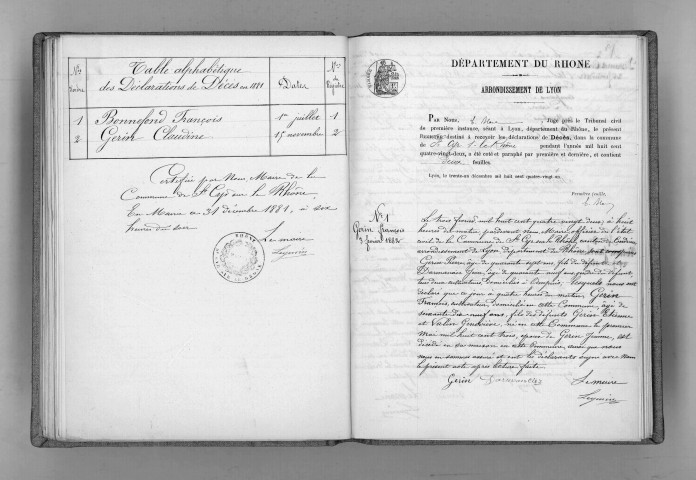 Nos d'ordre
Table alphabétique
des Déclarations de Décès en 1881
Dates
Nos du Registre
1 Bonnefond François 1er juillet 1
2 Gerin Claudine 15 novembre 2
Certifié par Nous Maire de la
Commune de St Cyr sur le Rhône
En Mairie ce 31 décembre 1881, à six
heures du soir
Le maire
DÉPARTEMENT DU RHONE
ARRONDISSEMENT DE LYON
PAR NOUS, Juge près le Tribunal civil
de première instance, séant à Lyon, département du Rhône, le présent
REGISTRE destiné à recevoir les déclarations de Décès, dans la commune
de St Cyr s. le Rhône pendant l'année mil huit cent
quatre-vingt-deux, a été coté et paraphé par première et dernière, et contient
deux feuilles.
Lyon, le trente-un décembre mil huit cent quatre-vingt
Première feuille,
No 1
Gerin François
3 février 1882
Le trois février mil huit cent quatre vingt deux, à huit
heures du matin, pardevant nous Maire, officier de l'état
civil de la Commune de St Cyr sur le Rhône, canton de Condrieu
arrondissement de Lyon département du Rhône, sont comparus
Gerin Pierre, âgé de quarante sept ans, fils du défunt, et
âgé de quarante neuf ans, gendre du défunt,
tous deux cultivateurs, domiciliés à Ampuis, lesquels nous ont
déclaré que ce jour à quatre heures du matin, Gerin
François, cultivateur, domicilié en cette Commune, âgé de
soixante dix neuf ans, fils des défunts Gerin Etienne
et Genevieve, né en cette Commune le premier
Mai mil huit cent trois, époux de Geron Jeanne, est
décédé en sa maison en cette Commune, ainsi que nous
nous en sommes assuré et ont les déclarants signé avec Nous
le présent acte après lecture faite.
Gerin
Le maire